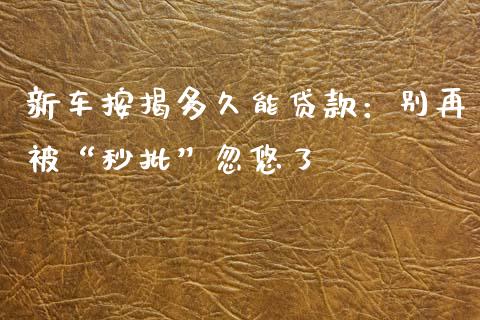 新车按揭多久能贷款：别再
被“秒批”忽悠了